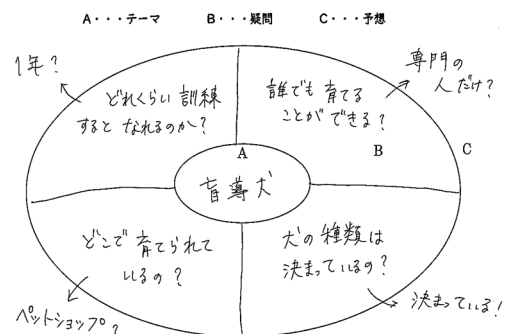 A・・・テーマ B・・・疑問 C・・・予想
1年？
どれくらい訓練
すると なれるのか？
誰でも育てる
ことができる？
専門の
人だけ？
A
B
C
盲導犬
どこで育てられて
いるの？
ペットショップ？
犬の種類は
決まっているの？
決まっている！